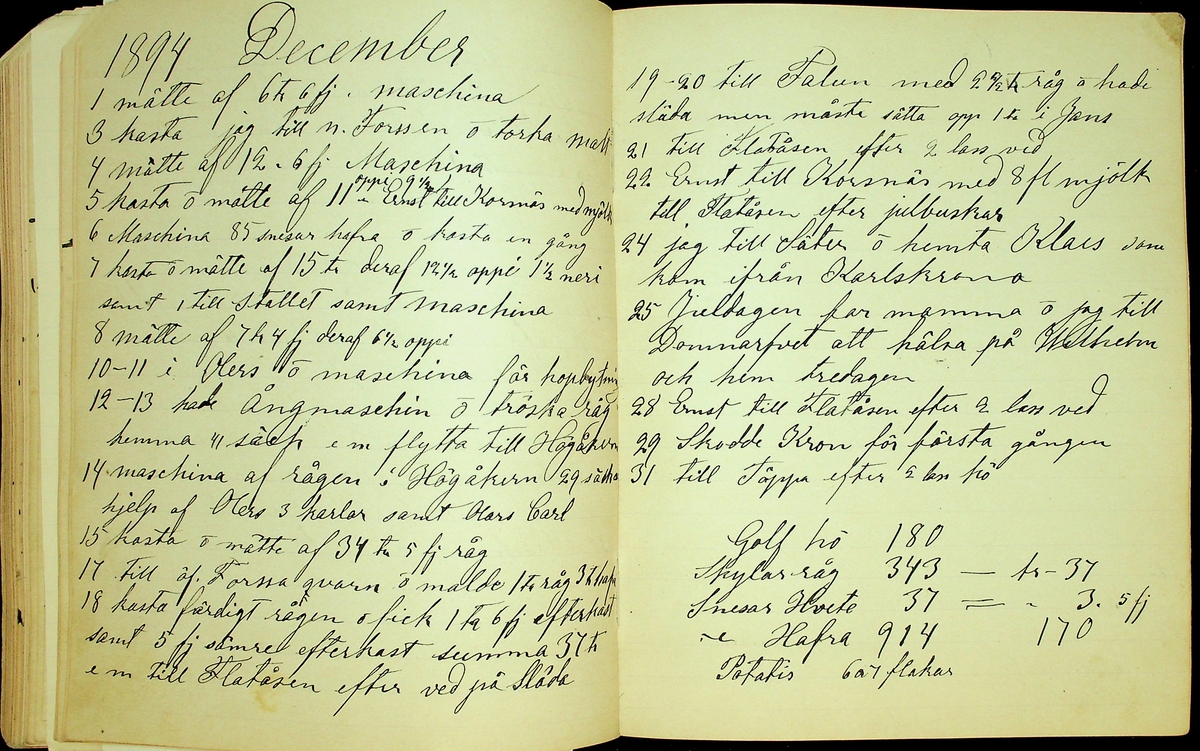 1894 December
1 mätte af 6 tr 6 fj. maschina
3 kasta jag till n. Forssen o torka malt
4 mätte af 12 - 6 fj Maschina
5 kasta o mätte af 11 oppe 9½ Ernst till Korsnäs med mjölk
6 Maschina 85 snesar hafra o kasta en gång
7 kasta o mätte af 15 tr deraf 12½ oppi 1½ neri
samt 1 till Stallet samt maschina
8 mätte af 7 tr 4 fj deraf 6½ oppi
10-11 i Olers o maschina för hopbytning
12-13 hade Ångmaschin o tröska råg
hemma 41 säck e m flytta till Högåkern
14 maschina af rågen i Högåkern 29 säckar
hjelp af Olers 3 karlar samt Olars Carl
15 kasta o mätte af 34 tr 5 fj råg
17 till öf. Forssa qvarn o malde 1 tr råg 3 tr hafra
18 kasta färdigt rågen o fick 1 tr 6 fj efterkast
samt 5 fj sämre efterkast summa 37 tr
e m till Flatåsen efter ved på Släda
19-20 till Falun med 2½ tr råg o hade
släda men måste sätta opp 1 tr i Jans
21 till Flatåsen efter 2 lass ved
22 Ernst till Korsnäs med 8 fl mjölk
till Flatåsen efter julbuskar
24 jag till Säter o hemta Klas som
kom ifrån Karlskrona
25 Juldagen far mamma o jag till
Domnarfvet att hälsa på Wilhelm
och hem tredagen
28 Ernst till Flatåsen efter 2 lass ved
29 Skodde Kron för första gången
31 till Täppa efter 2 lass hö
Golf hö 180
Skylar råg 343 — tr - 37
Snesar Hvete 37 = - 3. 5 fj
Hafra 914 170
Potatis 6 a 7 flakar